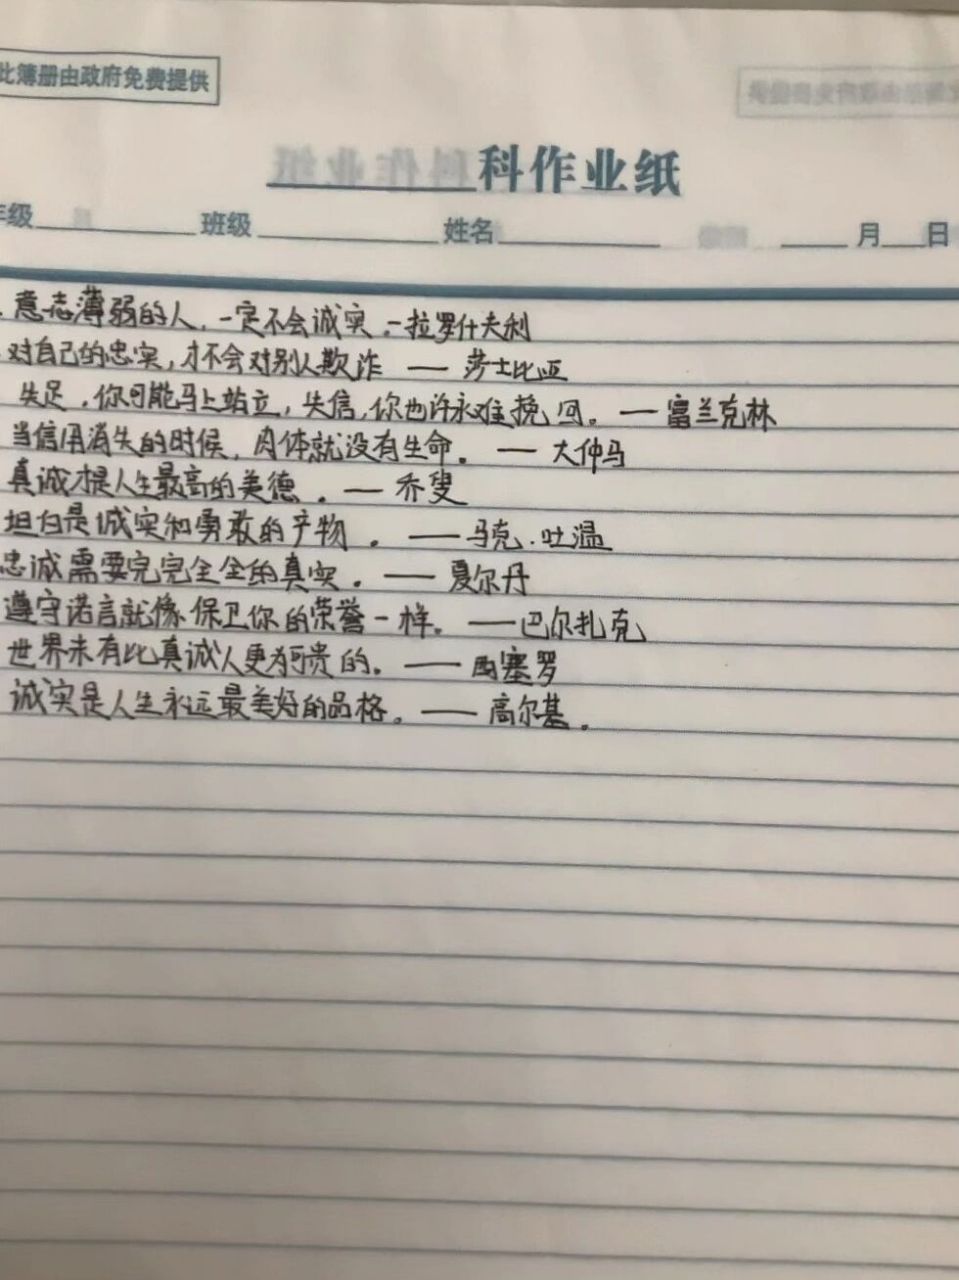 此簿册由政府免费提供
科作业纸
年级 班级 姓名 月 日
意志薄弱的人,一定不会诚实.—拉罗什夫利
对自己的忠实,才不会对别人欺诈 —— 莎士比亚
失足,你可能马上站立,失信,你也许永难挽回。——富兰克林
当信用消失的时候,肉体就没有生命。—— 大仲马
真诚才是人生最高的美德。—— 乔叟
坦白是诚实和勇敢的产物。——马克.吐温
忠诚需要完完全全的真实。—— 夏尔丹
遵守诺言就像保卫你的荣誉一样。——巴尔扎克
世界未有比真诚人更为可贵的。—— 西塞罗
诚实是人生永远最美好的品格。—— 高尔基.